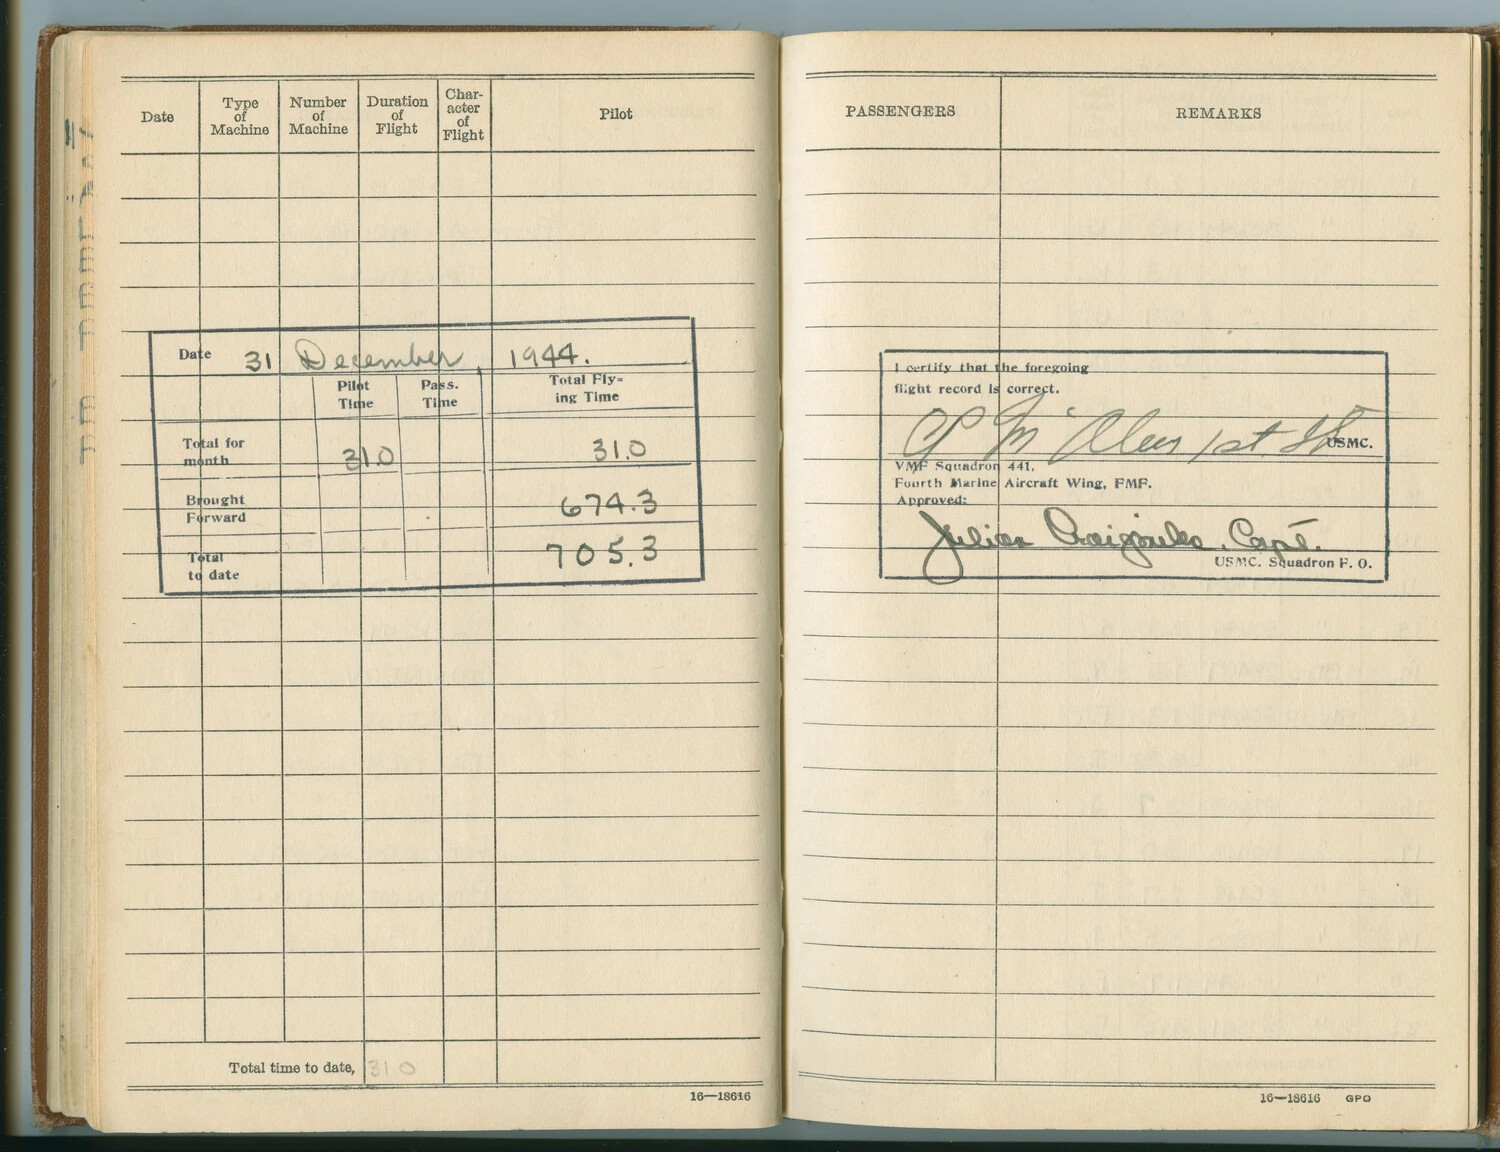 Date
Type
of
Machine
Number
of
Machine
Duration
of
Flight
Char-
acter
of
Flight
Pilot
Date 31 December, 1944.
Pilot
Time
Pass.
Time
Total Fly-
ing Time
Total for
month 31.0 31.0
Brought
Forward 674.3
Total
to date 705.3
Total time to date, 31 0
16—18616
PASSENGERS
REMARKS
I certify that the foregoing
flight record is correct.
1st Lt USMC.
VMF Squadron 441,
Fourth Marine Aircraft Wing, FMF.
Approved:
Julian Capt.
USMC. Squadron F. O.
16—18616 GPO